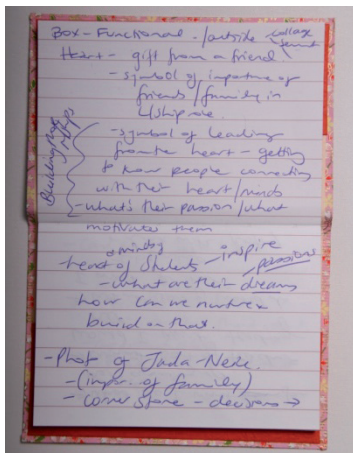 Box - Functional. /outside - collage
Heart - gift from a friend
- symbol of importance of
friends/family in
L/ship role.
- symbol of leading
from the heart - getting
to know people connecting
with their heart/minds
- what's their passion/what
motivates them
Building
& minds
- heart of students - inspire
passions
- what are their dreams
how can we nurture &
build on that.
- Photo of Jada-
- (impor. of family)
- corner stone - decisions →